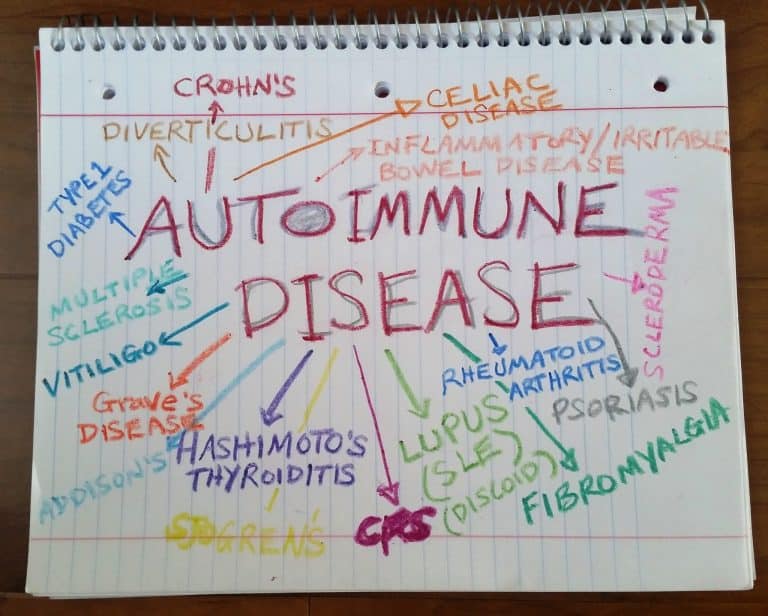 CROHN'S
CELIAC
DISEASE
DIVERTICULITIS
INFLAMMATORY/IRRITABLE
BOWEL DISEASE
TYPE 1
DIABETES
AUTOIMMUNE
DISEASE
SCLERODERMA
MULTIPLE
SCLEROSIS
VITILIGO
RHEUMATOID
ARTHRITIS
PSORIASIS
Grave's
DISEASE
ADDISON'S
HASHIMOTO'S
THYROIDITIS
LUPUS
(SLE)
(DISCOID)
FIBROMYALGIA
SJOGREN'S
CPS